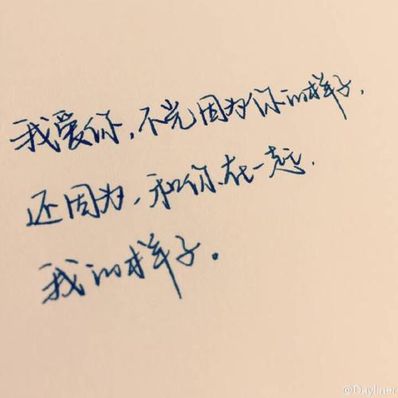 我爱你,不光因为你的样子,
还因为,和你在一起,
我的样子。